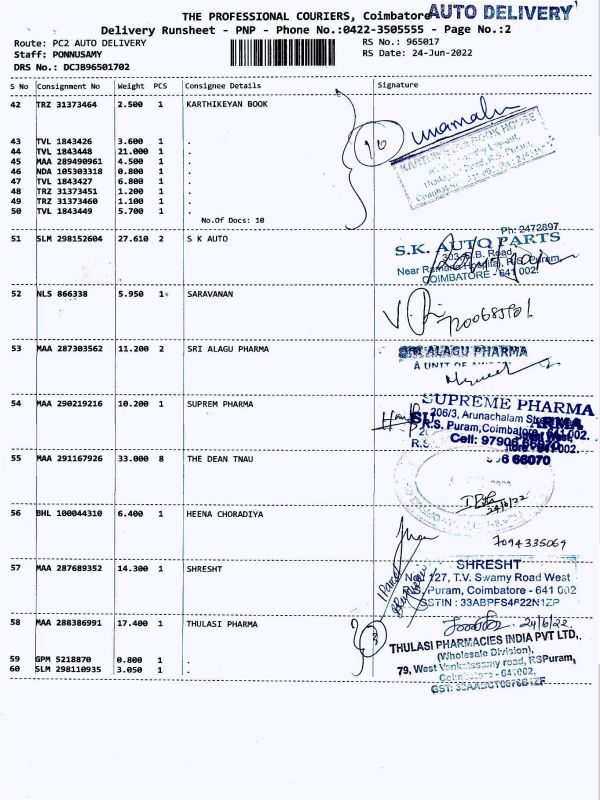 AUTO DELIVERY
THE PROFESSIONAL COURIERS, Coimbatore
Delivery Runsheet - PNP - Phone No.:0422-3505555 - Page No.:2
Route: PC2 AUTO DELIVERY
RS No.: 965017
Staff: PONNUSAMY
RS Date: 24-Jun-2022
DRS No.: DCJB96501702
S No Consignment No Weight PCS Consignee Details Signature
42 TRZ 31373464 2.500 1 KARTHIKEYAN BOOK
43 TVL 1843426 3.600 1 .
44 TVL 1843448 21.000 1 .
45 MAA 289490961 4.500 1 .
46 NDA 105303318 0.800 1 .
47 TVL 1843427 6.800 1 .
48 TRZ 31373451 1.200 1 .
49 TRZ 31373460 1.100 1 .
50 TVL 1843449 5.700 1 .
No.Of Docs: 10
10
51 SLM 298152604 27.610 2 S K AUTO
Ph: 2472897
S.K. AUTO PARTS
303, D.B. Road,
Near Ramana Hospital, R.S. Puram,
COIMBATORE - 641 002.
52 NLS 866338 5.950 1 SARAVANAN
53 MAA 287303562 11.200 2 SRI ALAGU PHARMA
SRI ALAGU PHARMA
A UNIT OF
54 MAA 290219216 10.200 1 SUPREM PHARMA
SUPREME PHARMA
206/3, Arunachalam
R.S. Puram, Coimbatore - 641 002.
Cell: 97906 66070
55 MAA 291167926 33.000 8 THE DEAN TNAU
24/6/22
56 BHL 100044310 6.400 1 HEENA CHORADIYA
7094335069
57 MAA 287689352 14.300 1 SHRESHT
SHRESHT
No. 127, T.V. Swamy Road West
R.S. Puram, Coimbatore - 641 002
GSTIN : 33ABPFS4F22N1ZP
58 MAA 288386991 17.400 1 THULASI PHARMA
24/6/22
3
THULASI PHARMACIES INDIA PVT LTD.,
(Wholesale Division),
79, West Venkatasamy road, RSPuram,
Coimbatore - 641 002.
59 GPM 5218870 0.800 1 .
60 SLM 298110935 3.050 1 .